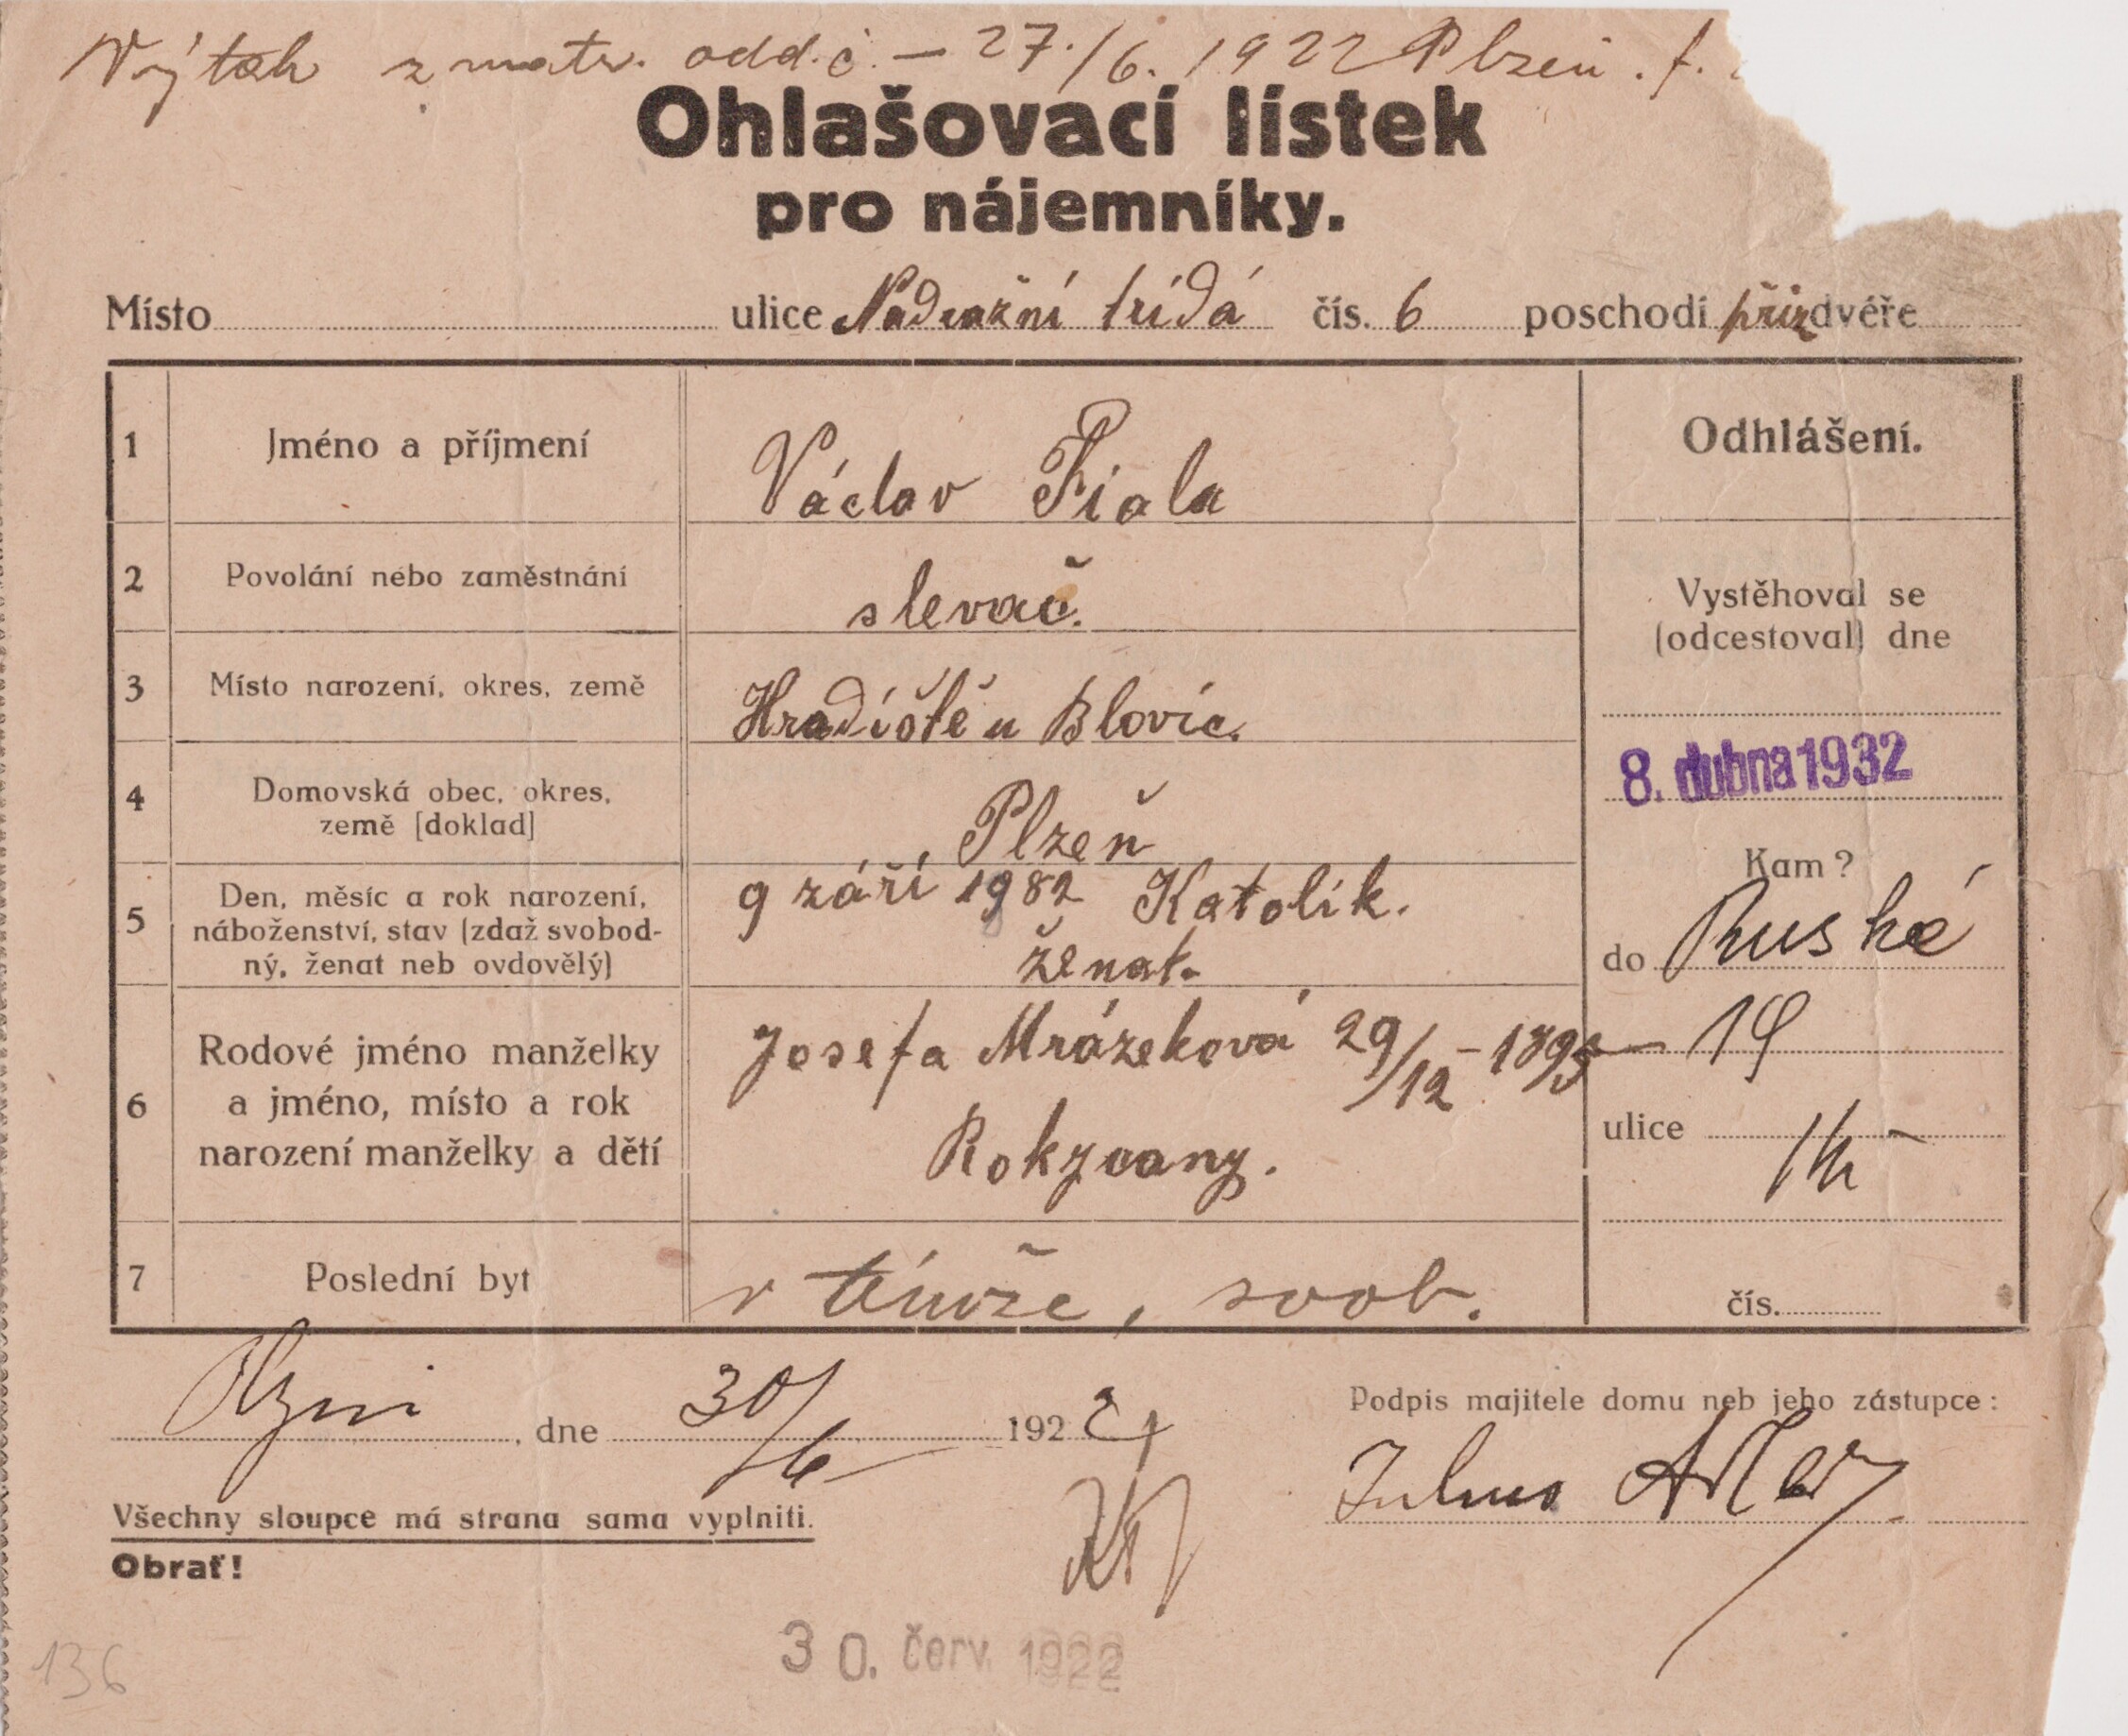 Výtah z matr. odd. č. — 27./6. 1922 Plzeň. f.
Ohlašovací lístek
pro nájemníky.
Místo ulice Nádražní třída čís. 6 poschodí příz dvéře
1 Jméno a příjmení Václav Fiala
Odhlášení.
2 Povolání nebo zaměstnání slevač.
Vystěhoval se
(odcestoval) dne
3 Místo narození, okres, země Hradiště u Blovic.
8. dubna 1932
4 Domovská obec, okres,
země [doklad] Plzeň
Kam?
5 Den, měsíc a rok narození,
náboženství, stav (zdaž svobod-
ný, ženat neb ovdovělý)
9 září 1982 Katolík.
ženat.
do Ruské
— 19
6 Rodové jméno manželky
a jméno, místo a rok
narození manželky a dětí
Josefa Mrázeková 29/12 - 1895
Rokycany.
ulice
7 Poslední byt v témže, svob.
čís.
Plzni, dne 30/6 1922
Podpis majitele domu neb jeho zástupce:
Julius Adler
Všechny sloupce má strana sama vyplniti.
Obrať!
30. červ. 1922
136